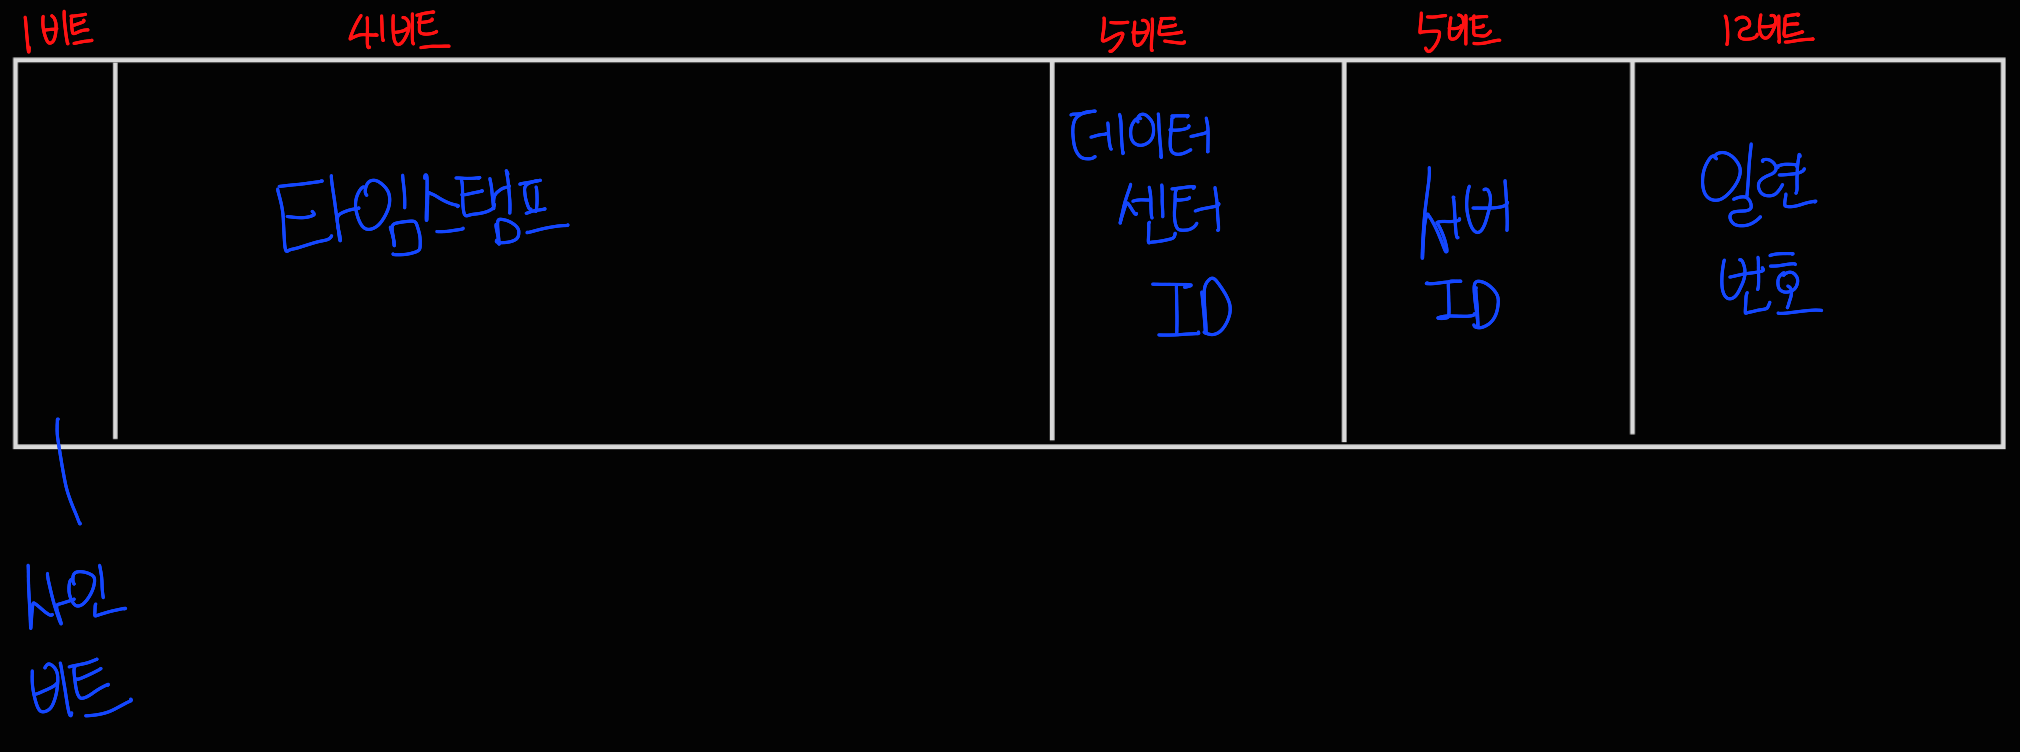 1비트
41비트
5비트
5비트
12비트
타임스탬프
데이터
센터
ID
서버
ID
일련
번호
사인
비트